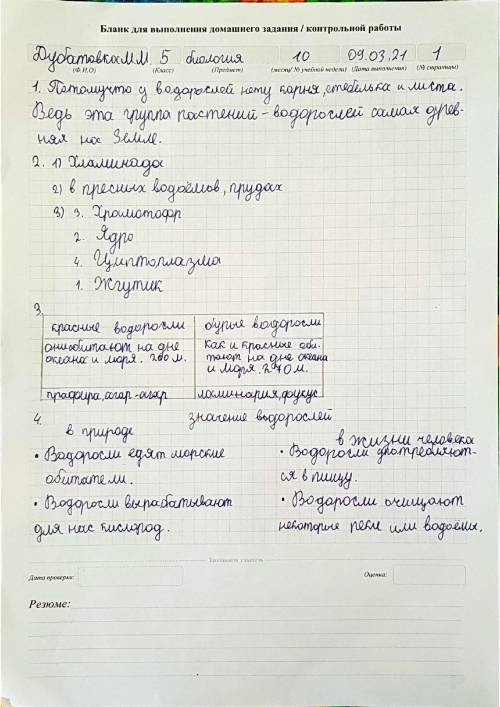 Бланк для выполнения домашнего задания / контрольной работы
Дубатовка М.М. 5 биология 10 09.03.21 1
(Ф.И.О) (Класс) (Предмет) (месяц/ № учебной недели) (Дата выполнения) (№ страницы)
1. Потомучто у водорослей нету корня, стебелька и листа.
Ведь эта группа растений - водорослей самая древ-
няя на Земле.
2. 1) Хламинада
2) в пресных водоёмов, прудах
3) 3. Хромотофор
2. Ядро
4. Цимптоплазма
1. Жгутик
3.
красные водоросли бурые водоросли
они обитают на дне океана и моря. 200 м. Как и красные оби-
тают на дне океана
и моря. 270 м.
прафира, агар-агар ламинария, фукус
4. значение водорослей
в природе
в жизни человека
• Водоросли едят морские • Водоросли употребляют-
обитатели. ся в пищу.
• Водоросли вырабатывают • Водоросли очищают
для нас кислород. некоторые реки или водоёмы.
Дата проверки: Оценка:
Резюме: